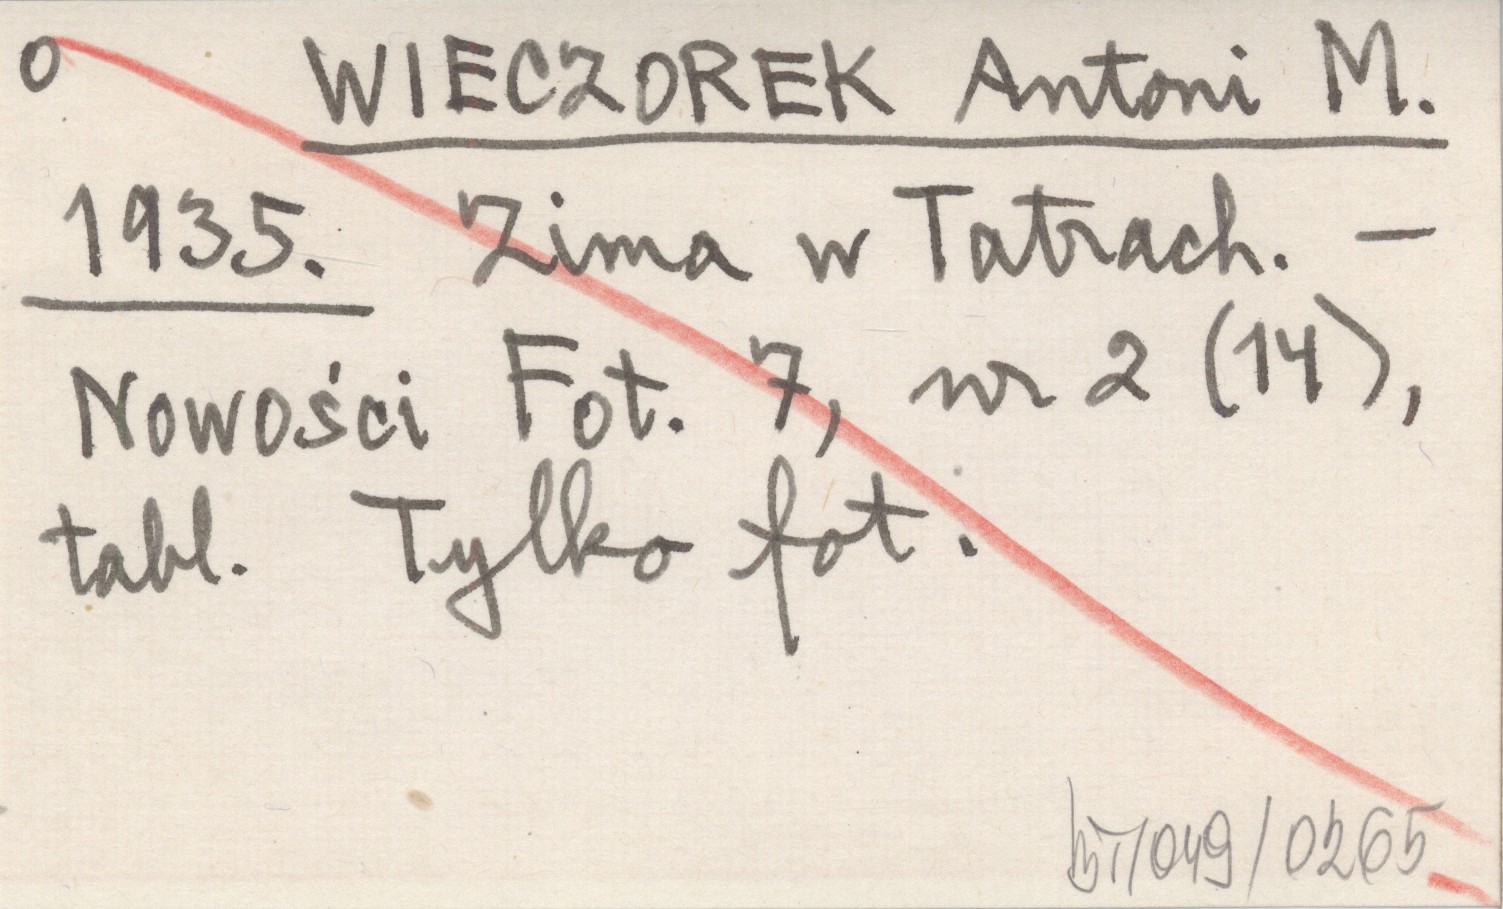 o WIECZOREK Antoni M.
1935. Zima w Tatrach. –
Nowości Fot. 7, nr 2 (14),
tabl. Tylko fot.
/049/0265